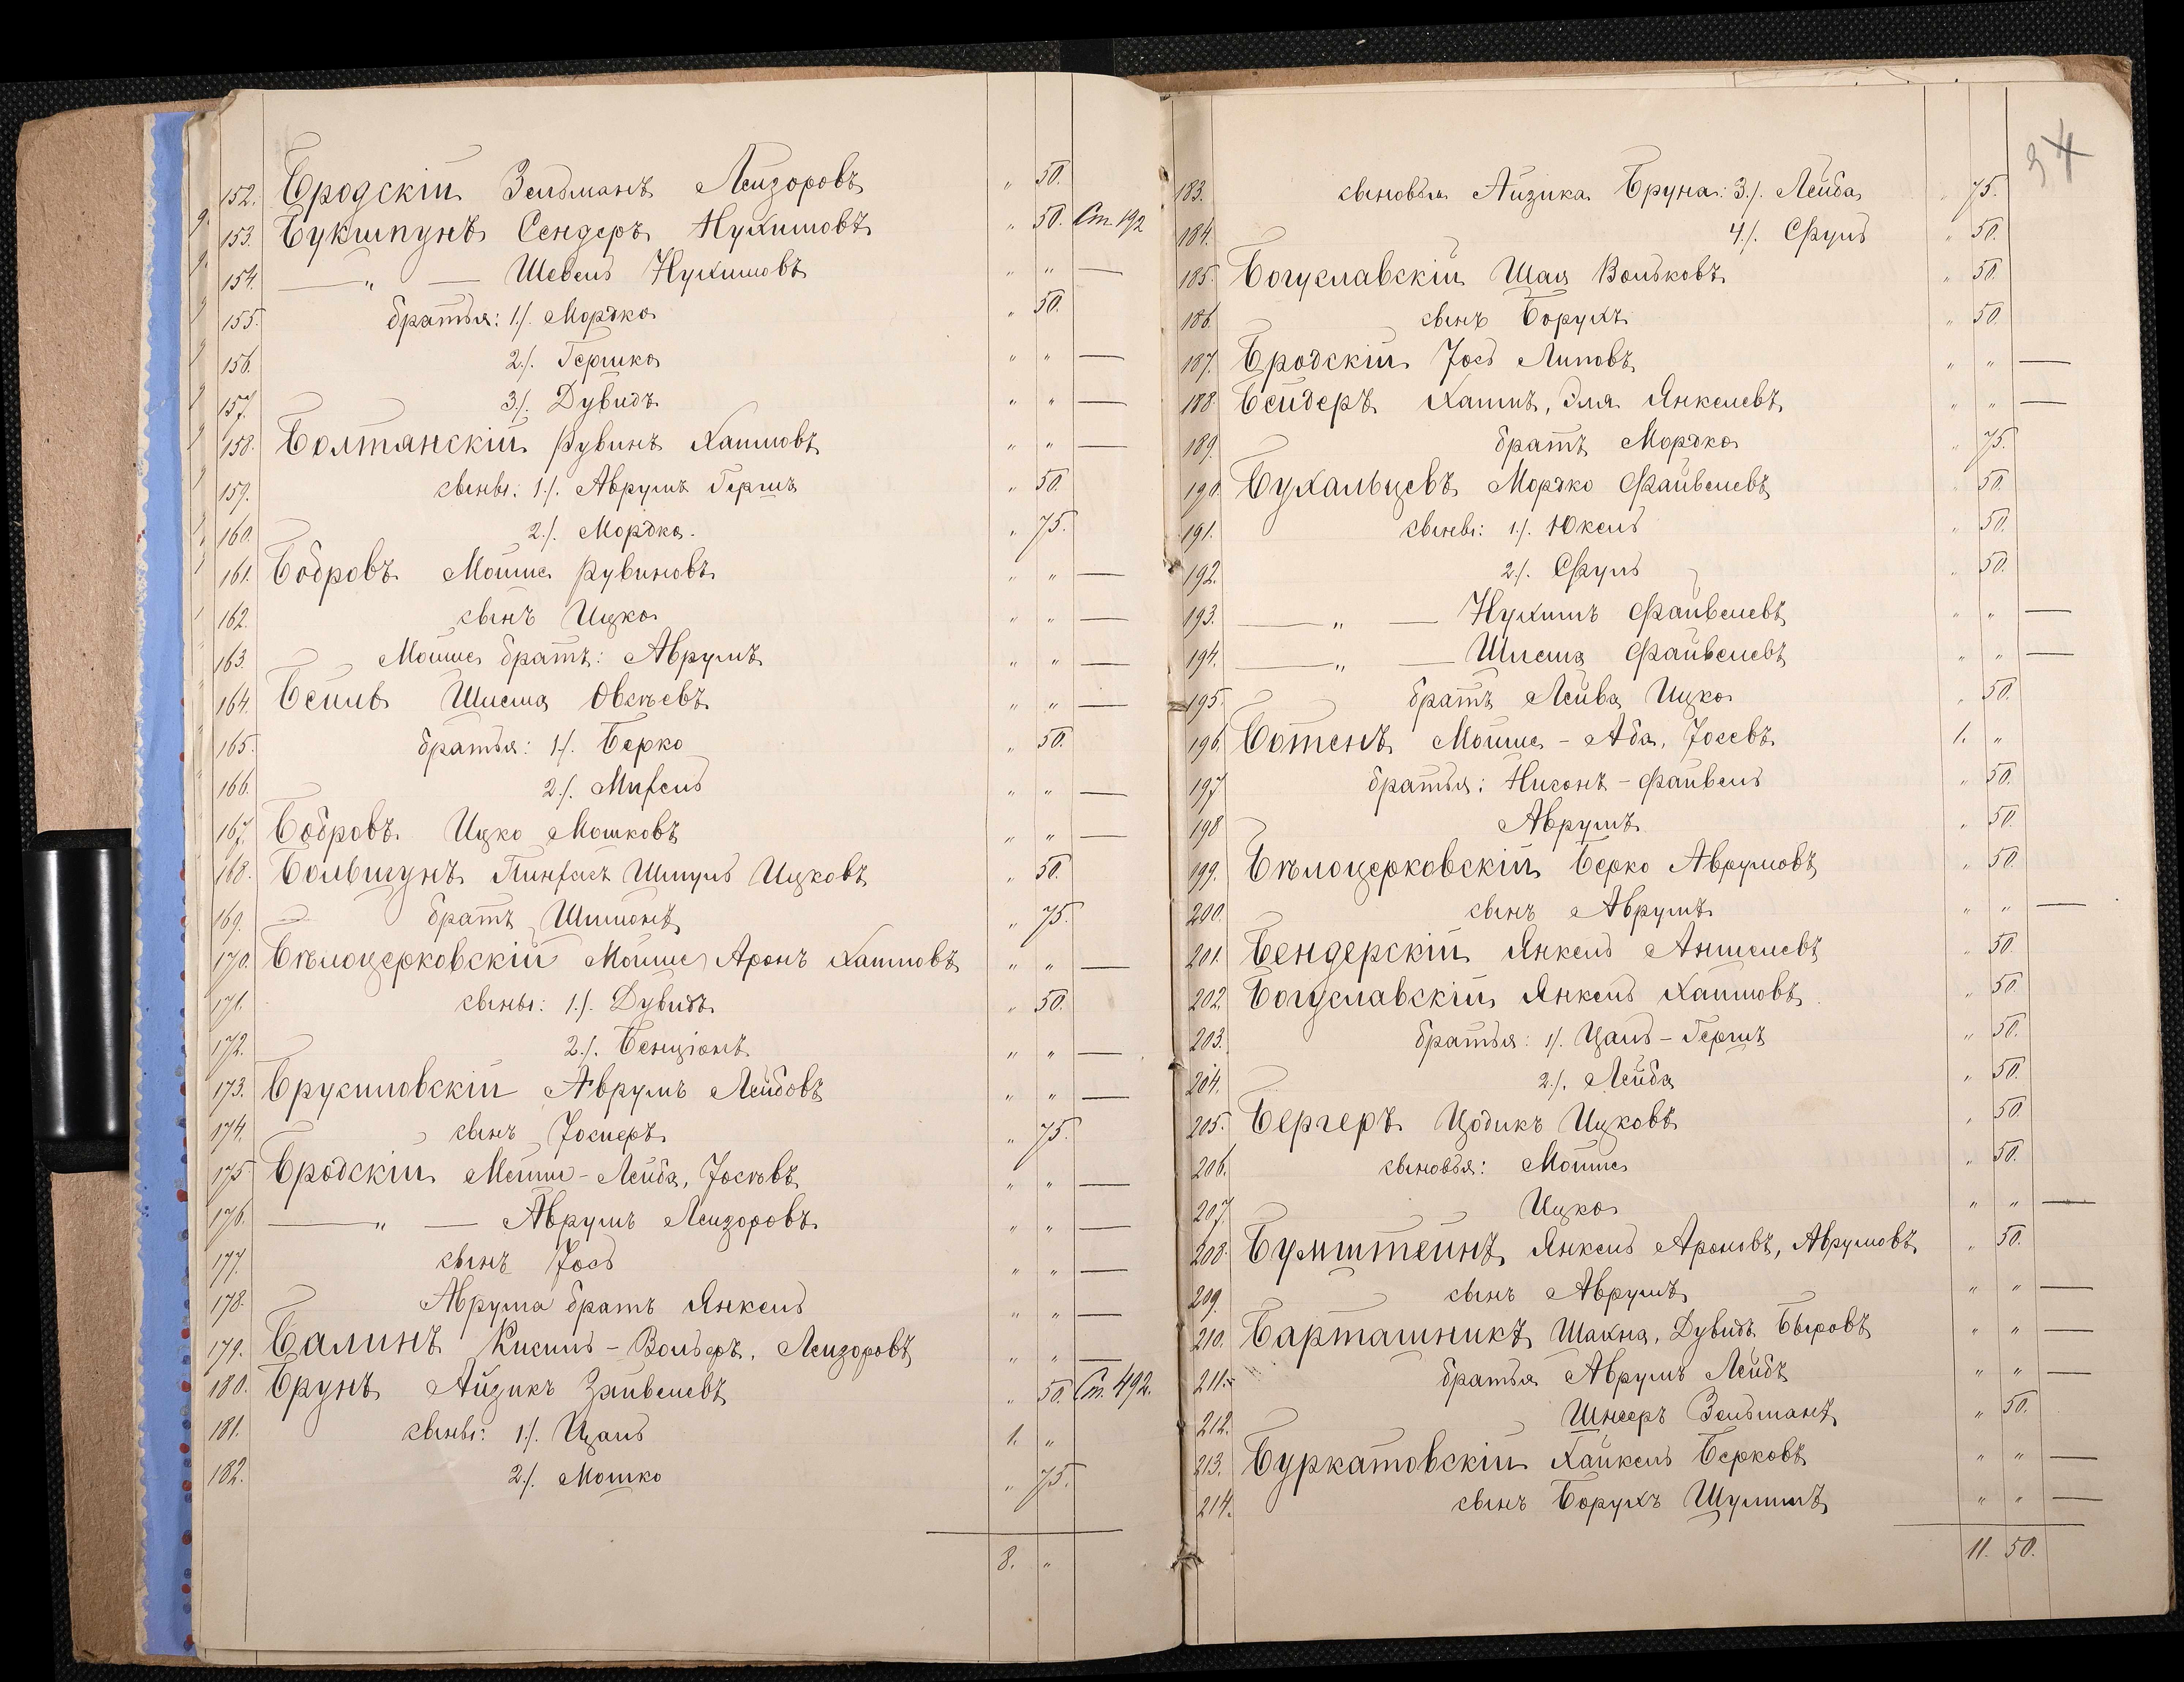 152. Бродскій Зельманъ Лейзоровъ „ 50.
153. Букшпунъ Сендеръ Нухимовъ „ 50. Ст. 192
154. — „ — Шевель Нухимовъ „ „ —
155. братья: 1/. Мордко „ 50.
156. 2/. Гершко „ „ —
157. 3/. Дувидъ „ „ —
158. Болтянскій Рувинъ Хаимовъ „ „ —
159. сыны: 1/. Аврумъ Гершъ „ 50.
160. 2/. Мордко. „ 75.
161. Бобровъ Мойше Рувиновъ „ „ —
162. сынъ Ицко „ „ —
163. Мойше братъ: Аврумъ „ „ —
164. Шлема Овсѣевъ „ „ —
165. братья: 1/. Берко „ 50.
166. 2/. „ „ —
167. Бобровъ Ицко Мошковъ „ „ —
168. Пинхасъ Шмуль Ицковъ „ 50.
169. братъ Шимонъ „ 75.
170. Бѣлоцерковскій Мойше Аронъ Хаимовъ „ „ —
171. сыны: 1/. Дувидъ „ 50.
172. 2/. Бенціонъ „ „ —
173. Брусиловскій Аврумъ Лейбовъ „ „ —
174. сынъ „ 75.
175 Бродскій Мейше-Лейба, Іосевъ „ „ —
176. — „ — Аврумъ Лейзоровъ „ „ —
177. сынъ Іось „ „ —
178. Аврума братъ Янкель „ „ —
179. Балинъ Кисиль-Вольфъ, Лейзоровъ „ „ —
180. Брунъ Айзикъ Зайвелевъ „ 50. Ст. 492.
181. сыны: 1/. Цаль 1. „
182. 2/. Мошко „ 75.
8. „
34
183. сыновья Айзика Бруна: 3/. Лейба „ 75.
184. 4/. Сруль „ 50.
185. Богуславскій Шая Вольковъ „ 50.
186. сынъ Борухъ „ 50.
187. Бродскій Іось Липовъ „ „ —
188. Бейдеръ Хаимъ, Эля Янкелевъ „ „ —
189. братъ Мордко „ 75.
190. Бухальцевъ Мордко Файвелевъ „ 50.
191. сыны: 1/. Юкель „ 50.
192. 2/. Сруль „ 50.
193. — „ — Нухимъ Файвелевъ „ „ —
194. — „ — Шлема Файвелевъ „ „ —
195. братъ Лейба Ицко „ 50.
196. Ботенъ Мойше-Аба, Іосевъ 1. „
197 братья: Нисонъ-Файвель „ 50.
198 Аврумъ „ 50.
199. Бѣлоцерковскій Берко Аврумовъ „ 50.
200. сынъ Аврумъ „ „ —
201. Бендерскій Янкель Аншелевъ „ 50.
202. Богуславскій Янкель Хаимовъ „ 50
203. братья: 1/. Цаль-Гершъ „ 50.
204. 2/. Лейба „ 50.
205. Бергеръ Цодикъ Ицковъ „ 50.
206. сыновья: Мойше „ 50.
207. Ицко „ „ —
208. Бумштейнъ Янкель Ароновъ, Аврумовъ „ 50.
209. сынъ Аврумъ „ „ —
210. Барташникъ Шахна, Дувидъ Беровъ „ „ —
211. братья Аврумъ Лейбъ „ „ —
212. Шнееръ Зельманъ „ 50.
213. Буркатовскій Хайкель Берковъ „ „ —
214. сынъ Борухъ Шулимъ „ „ —
11. 50.